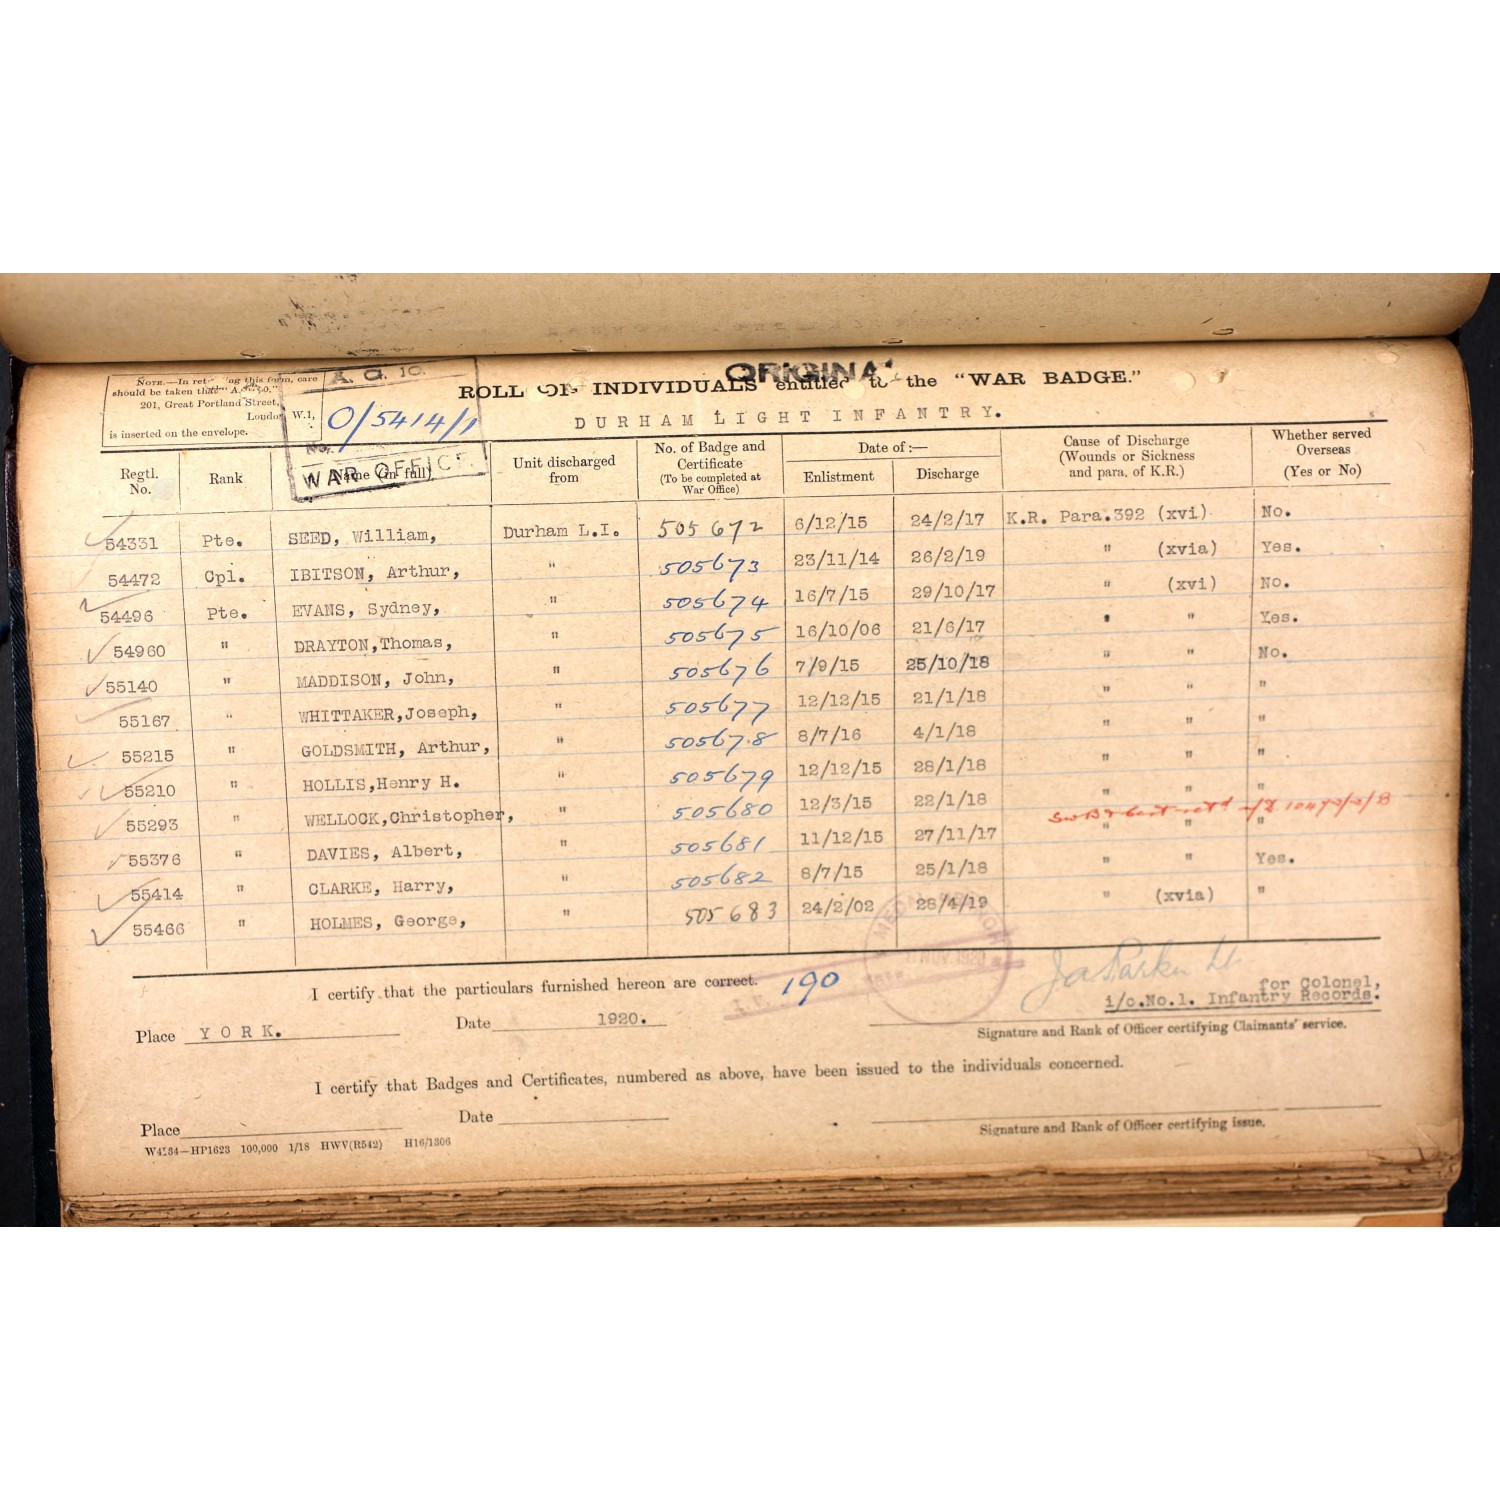 NOTE.—In ret ing this form, care
should be taken that "A.G.10."
201, Great Portland Street,
London W.1,
is inserted on the envelope.
A. G. 10.
O/5414/1
No.
WAR OFFICE
ORIGINAL
ROLL OF INDIVIDUALS entitled to the "WAR BADGE."
DURHAM LIGHT INFANTRY.
Regtl. No. | Rank | Name (in full) | Unit discharged from | No. of Badge and Certificate (To be completed at War Office) | Date of :— Enlistment | Discharge | Cause of Discharge (Wounds or Sickness and para. of K.R.) | Whether served Overseas (Yes or No)
54331 Pte. SEED, William, Durham L.I. 505672 6/12/15 24/2/17 K.R. Para.392 (xvi) No.
54472 Cpl. IBITSON, Arthur, " 505673 23/11/14 26/2/19 " (xvia) Yes.
54496 Pte. EVANS, Sydney, " 505674 16/7/15 29/10/17 " (xvi) No.
54960 " DRAYTON, Thomas, " 505675 16/10/06 21/6/17 " " Yes.
55140 " MADDISON, John, " 505676 7/9/15 25/10/18 " " No.
55167 " WHITTAKER, Joseph, " 505677 12/12/15 21/1/18 " " "
55215 " GOLDSMITH, Arthur, " 505678 8/7/16 4/1/18 " " "
55210 " HOLLIS, Henry H. " 505679 12/12/15 28/1/18 " " "
55293 " WELLOCK, Christopher, " 505680 12/3/15 22/1/18 " " "
55376 " DAVIES, Albert, " 505681 11/12/15 27/11/17 " " "
55414 " CLARKE, Harry, " 505682 8/7/15 25/1/18 " " Yes.
55466 " HOLMES, George, " 505683 24/2/02 28/4/19 " (xvia) "
I certify that the particulars furnished hereon are correct. 190
NOV 1920
J A Parker Lt
for Colonel,
i/c.No.1. Infantry Records.
Place YORK. Date 1920.
Signature and Rank of Officer certifying Claimants' service.
I certify that Badges and Certificates, numbered as above, have been issued to the individuals concerned.
Place Date
Signature and Rank of Officer certifying issue.
W4184—HP1623 100,000 1/18 HWV(R542) H16/1306